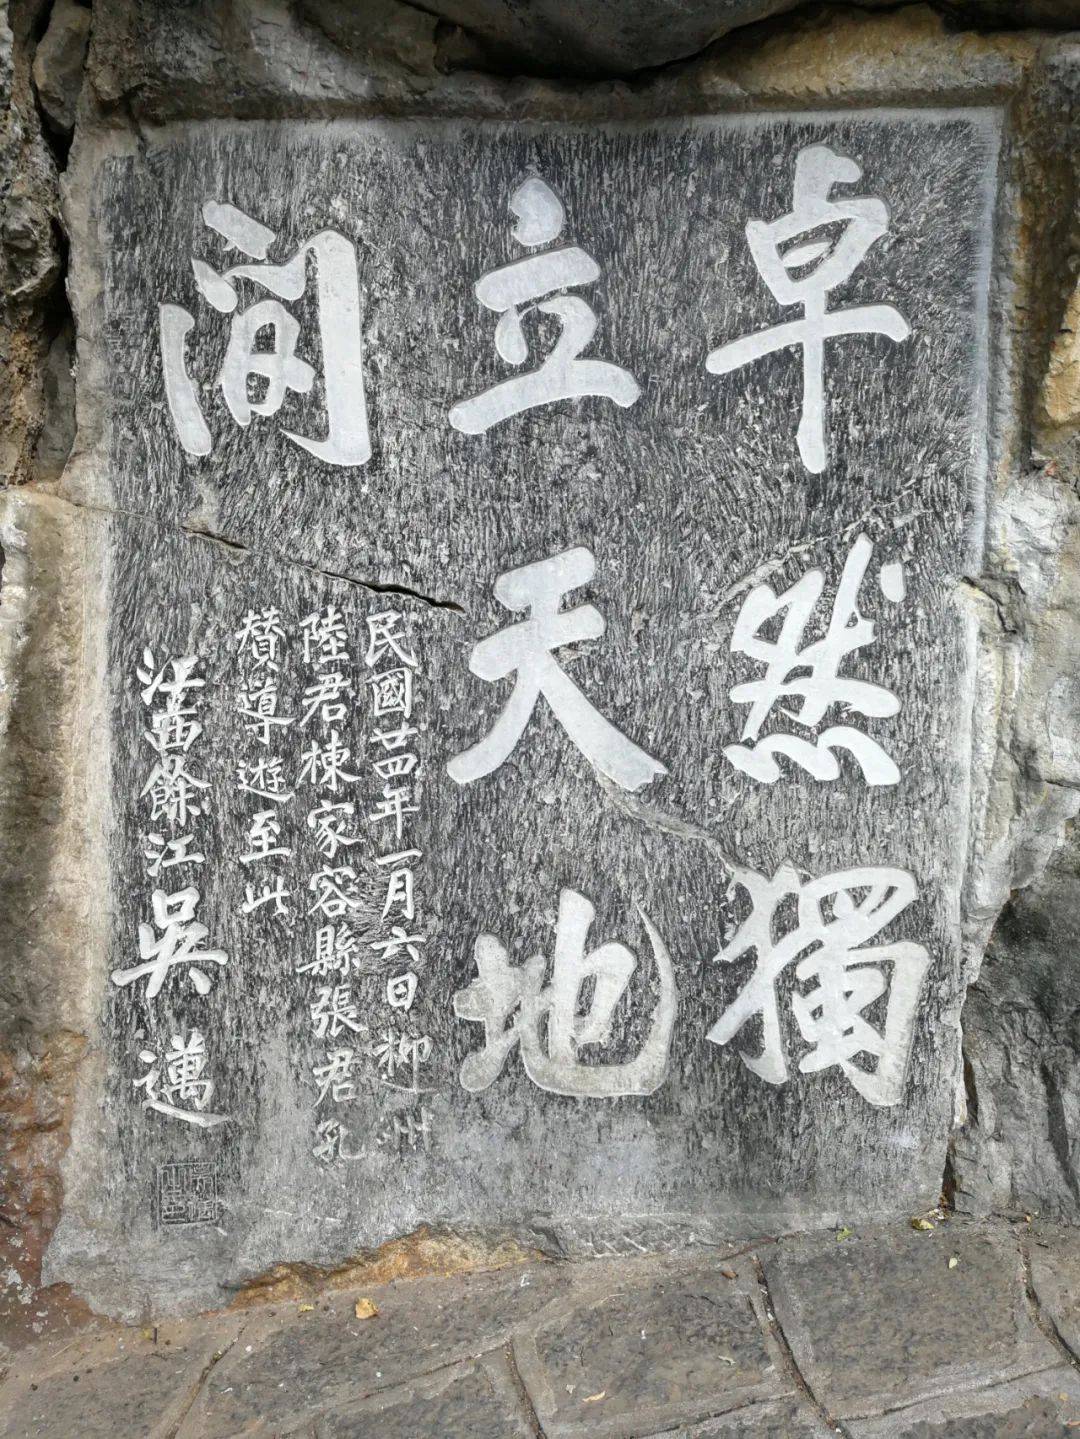 卓然獨
立天地
間
民國廿四年一月六日柳州
陸君棟家容縣張君孔
贊導遊至此
江西餘江吳邁